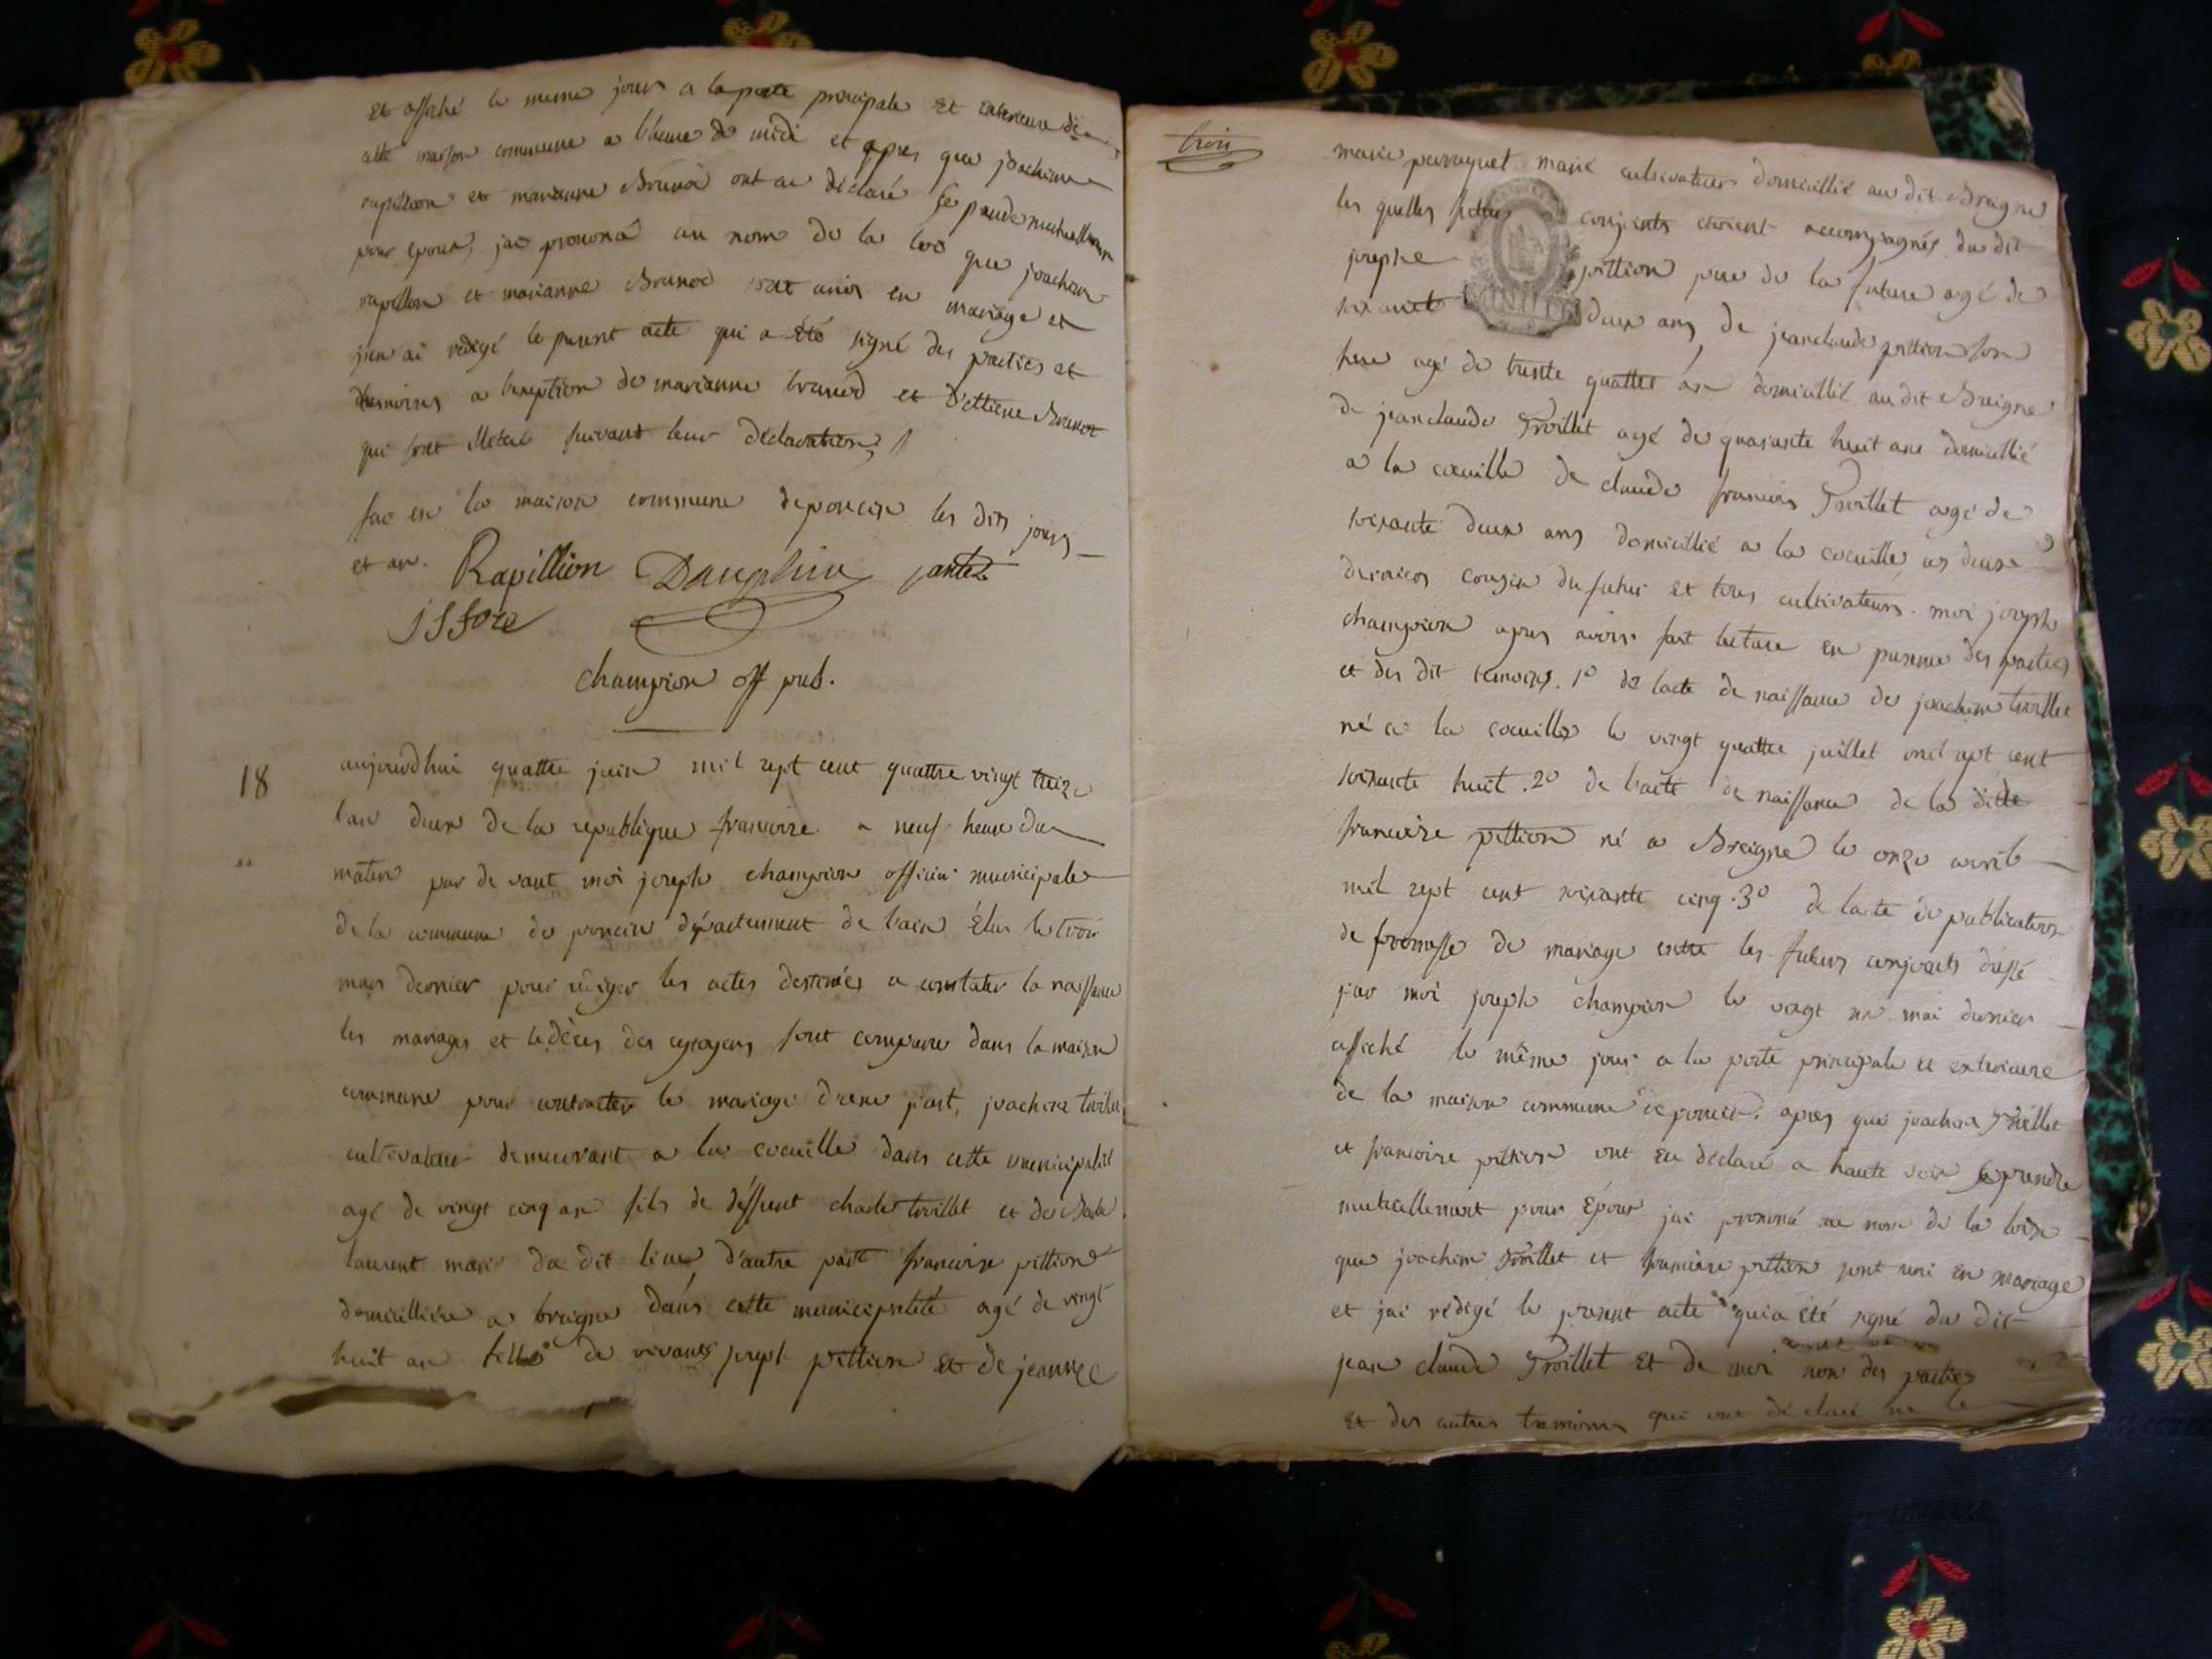 Et affiché le meme jour a la porte principale Et exterieure de
cette maison commune a lheure de midi et apres que joachim
rapillion et marianne Brunod ont eu déclaré se prendre mutuellement
pour epoux, jai prononcé au nom de la loi que joachim
rapillion et marianne Brunod sont unis en mariage et
jen ai redigé le present acte qui a été signé des parties et
temoins a lexeption de marianne brunod et d'ettiene Brunod
qui sont illeteré suivant leur déclaration
fac en la maison commune deponcin les dits jours
et an. Rapillion Dauphin jantet
jssore
champion off pub.
18
aujourdhui quattre juin mil sept cent quattre vingt treize
lan deux de la republique francoise a neuf heure du
matin par de vant moi joseph champion officier municipale
de la commune de poncin département de l'ain Élus le trois
mars dernier pour rédiger les actes destinés a constater la naissance
les mariages et le décès des cytoyens sont comparu dans la maison
commune pour contracter le mariage d'une part, joachim troillet
cultivateur demeurant a la cocuille dans cette municipalité
agé de vingt cinq an fils de déffunt charle troillet et de
laurent marié du dit lieu d'autre part francoise pittion
domicilliée a breigne dans cette municipalité agé de vingt
huit an fille de vivants joseph pittion et de jeanne
trois
marie perraquet marié cultivateur domicillié au dit Breigne
les quelles futur conjoints etoient accompagnés du dit
josephe pittion pere de la future agé de
soixante deux ans, de jeanclaude pittion son
frere agé de trente quattre an domicillié au dit Breigne
de jeanclaude Troillet agé de quarante huit ans domicillié
a la cocuille de claude francois Troillet agé de
soixante deux ans domicillié a la cocuille, ces deux
derniers cousin du futur et tous cultivateurs. moi joseph
champion apres avoir fait lecture en presence des parties
et des dit temoins. 1º de lacte de naissance de joachim troillet
né a la cocuille le vingt quattre juillet mil sept cent
soixante huit. 2º de l'acte de naissance de la ditte
francoise pittion né a Breigne le onze avril
mil sept cent soixante cinq. 3º de lacte de publication
de promesse de mariage entre les futurs conjoints dressé
par moi joseph champion le vingt six mai dernier
affiché le même jour a la porte principale et exterieure
de la maison commune de poncin. apres que joachim Troillet
et francoise pittion ont eu déclaré a haute voix se prendre
mutuellement pour Époux jai prononcé au nom de la loix
que joachim Troillet et francoise pittion sont uni en mariage
et jai rédigé le present acte qui a été signé du dit
jean claude Troillet et de moi non des parties
Et des autres temoins qui ont dé claré ne le